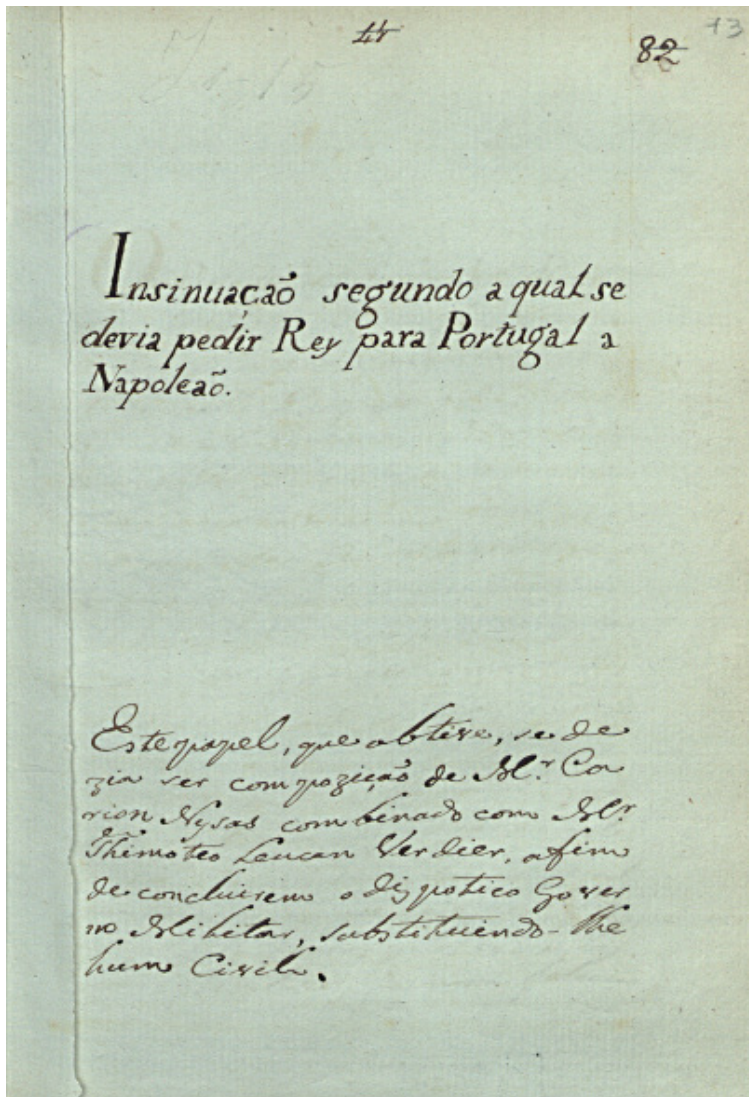 44
82
13
Insinuação segundo a qual se
devia pedir Rey para Portugal a
Napoleaõ.
Este papel, que obtive, se de
zia ser compozição de M.r Ca
rion Nysas combinado com M.r
Thimoteo Lecuan Verdier, afim
de concluirem o dispotico Gover
no Militar, substituindo-lhe
hum Civil.